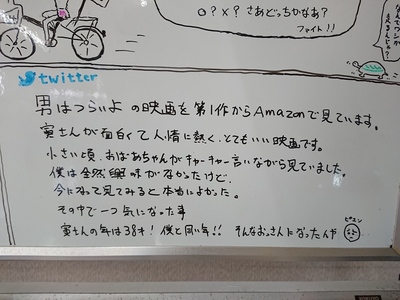 ○？×？ さあどっちかなぁ？
ファイト！！
twitter
男はつらいよ の映画を第1作からAmazonで見ています。
寅さんが面白くて人情に熱く、とてもいい映画です。
小さい頃、おばあちゃんがキャーキャー言いながら見ていました。
僕は全然興味がなかったけど、
今になって見てみると本当によかった。
その中で一つ気になった事
寅さんの年は38才！ 僕と同い年！！ そんなおっさんになったんや